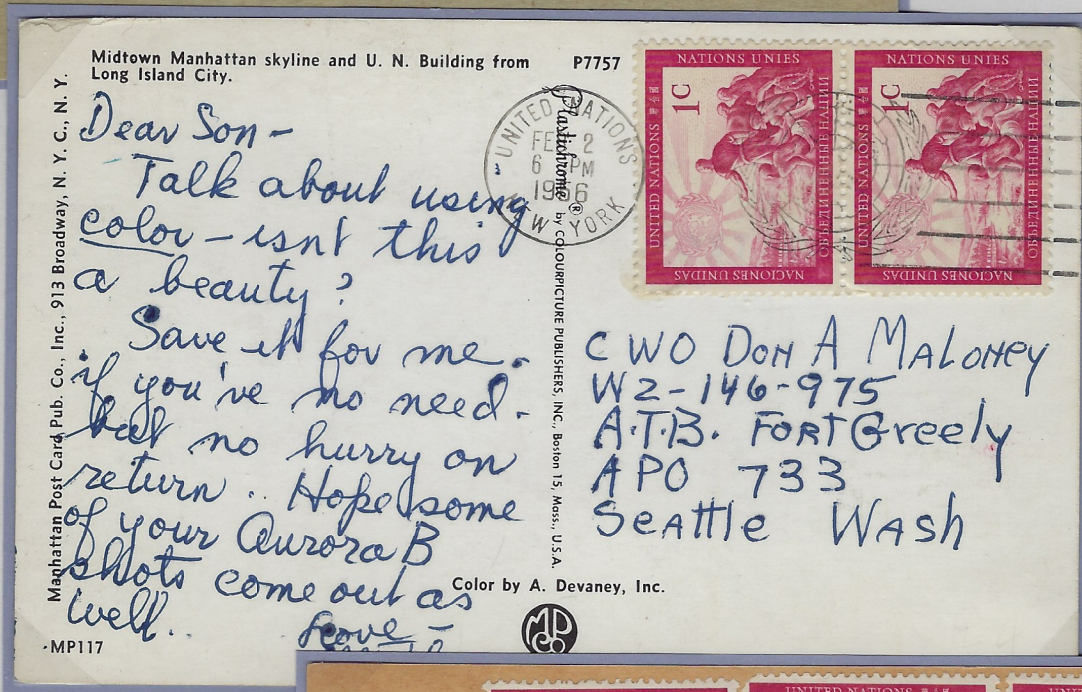 Midtown Manhattan skyline and U. N. Building from
Long Island City.
P7757
Manhattan Post Card Pub. Co., Inc., 913 Broadway, N. Y. C., N. Y.
Dear Son-
Talk about using
color - isnt this
a beauty?
Save it for me
if you've no need -
but no hurry on
return.. Hope some
of your Aurora B
shots come out as
well..
Love -
MP117
UNITED NATIONS
FEB 2
6 PM
1956
NEW YORK
Plastichrome ® by COLOURPICTURE PUBLISHERS, INC., Boston 15, Mass., U.S.A.
Color by A. Devaney, Inc.
MP
CO
NATIONS UNIES
1c
UNITED NATIONS
ОБЪЕДИНЕННЫЕ НАЦИИ
NACIONES UNIDAS
NATIONS UNIES
1c
UNITED NATIONS
ОБЪЕДИНЕННЫЕ НАЦИИ
NACIONES UNIDAS
CWO DON A MALONEY
W2-146-975
A.T.B. FORT Greely
APO 733
Seattle WASH
UNITED NATIONS